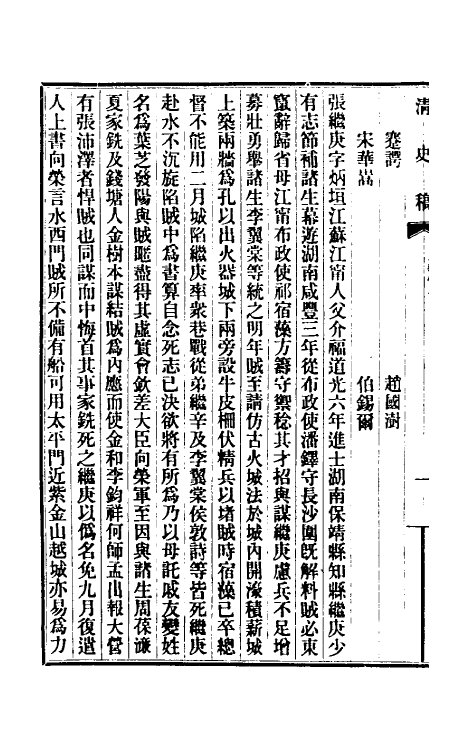 清史稿
一
蹇諤　趙國澍
宋華嵩　伯錫爾
張繼庚字炳垣江蘇江甯人父介福道光六年進士湖南保靖縣知縣繼庚少
有志節補諸生幕遊湖南咸豐三年從布政使潘鐸守長沙圍既解料賊必東
竄辭歸省母江甯布政使祁宿藻方籌守禦稔其才招與謀繼庚慮兵不足增
募壯勇舉諸生李翼棠等統之明年賊至請仿古火城法於城內開濠積薪城
上築兩牆為孔以出火器城下兩旁設牛皮柵伏精兵以堵賊時宿藻已卒總
督不能用二月城陷繼庚率衆巷戰從弟繼辛及李翼棠侯敦詩等皆死繼庚
赴水不沉旋陷賊中為書算自念死志已決欲將有所為乃以母託戚友變姓
名為葉芝發陽與賊暱盡得其虛實會欽差大臣向榮軍至因與諸生周葆濂
夏家銑及錢塘人金樹本謀結賊為內應而使金和李鈞祥何師孟出報大營
有張沛澤者悍賊也同謀而中悔首其事家銑死之繼庚以僞名免九月復遣
人上書向榮言水西門賊所不備有船可用太平門近紫金山越城亦易為力